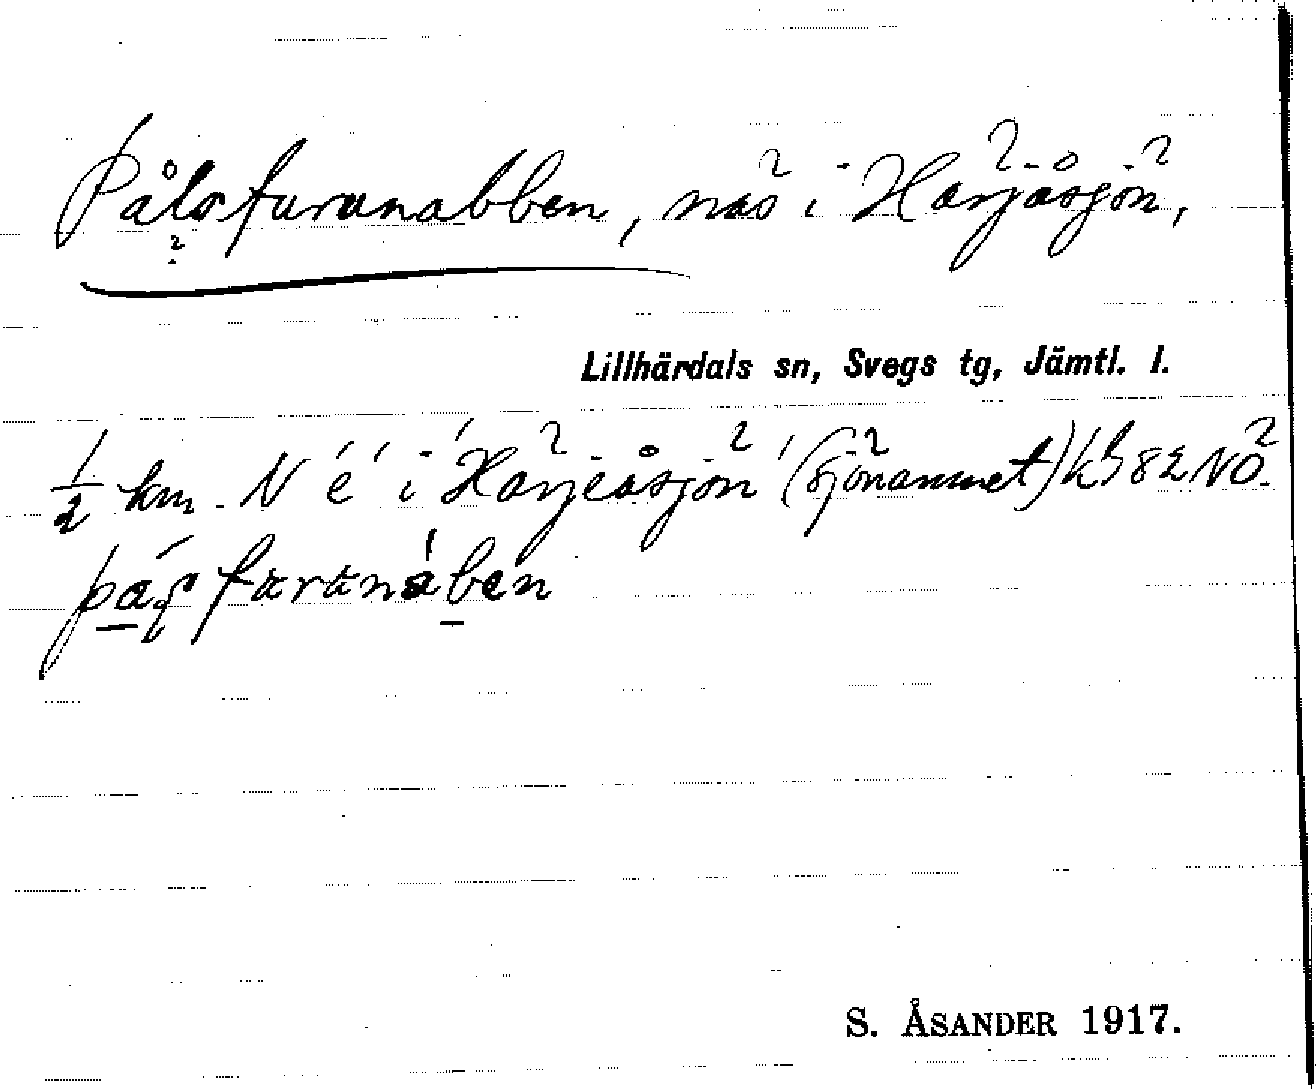 Pålsfuranabben, näs i Härjåsjön,
Lillhärdals sn, Svegs tg, Jämtl. l.
1/2 km. N é i Härjeåsjön (sjönamnet) kbl 82 NO.
S. ÅSANDER 1917.